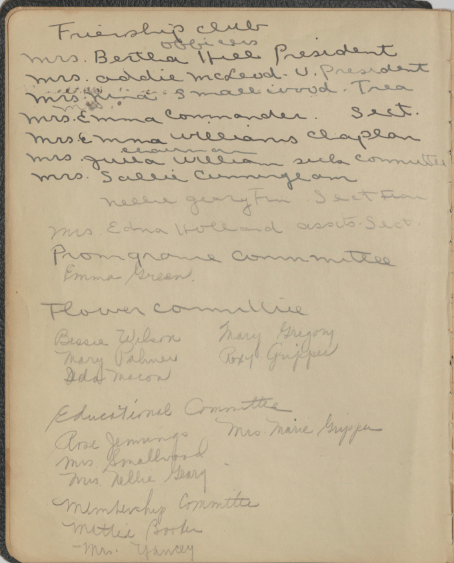 Frienship club
officers
Mrs. Bertha Hill President
Mrs. Addie McLeod. V. President
Mrs. Nina Smallwood. Trea
Mrs. Emma Commander. Sect.
Mrs. Emma Williams Claplan
chairman
Mrs. Julia William sick Committee
Mrs. Sallie Cunningham
Nellie Geary Fin. Sect
Mrs Edna Holland assts. Sect.
Promgrame Committee
Emma Green.
Flower Committee
Bessie Wilson Mary Gregory
Mary Palmer Roxy Gripper
Ida Macon
Educational Committee
Rose Jennings Mrs. Marie Gripper
Mrs Smallwood
Mrs Nellie Geary
Membership Committee
Mettie Booker
Mrs. Yancey